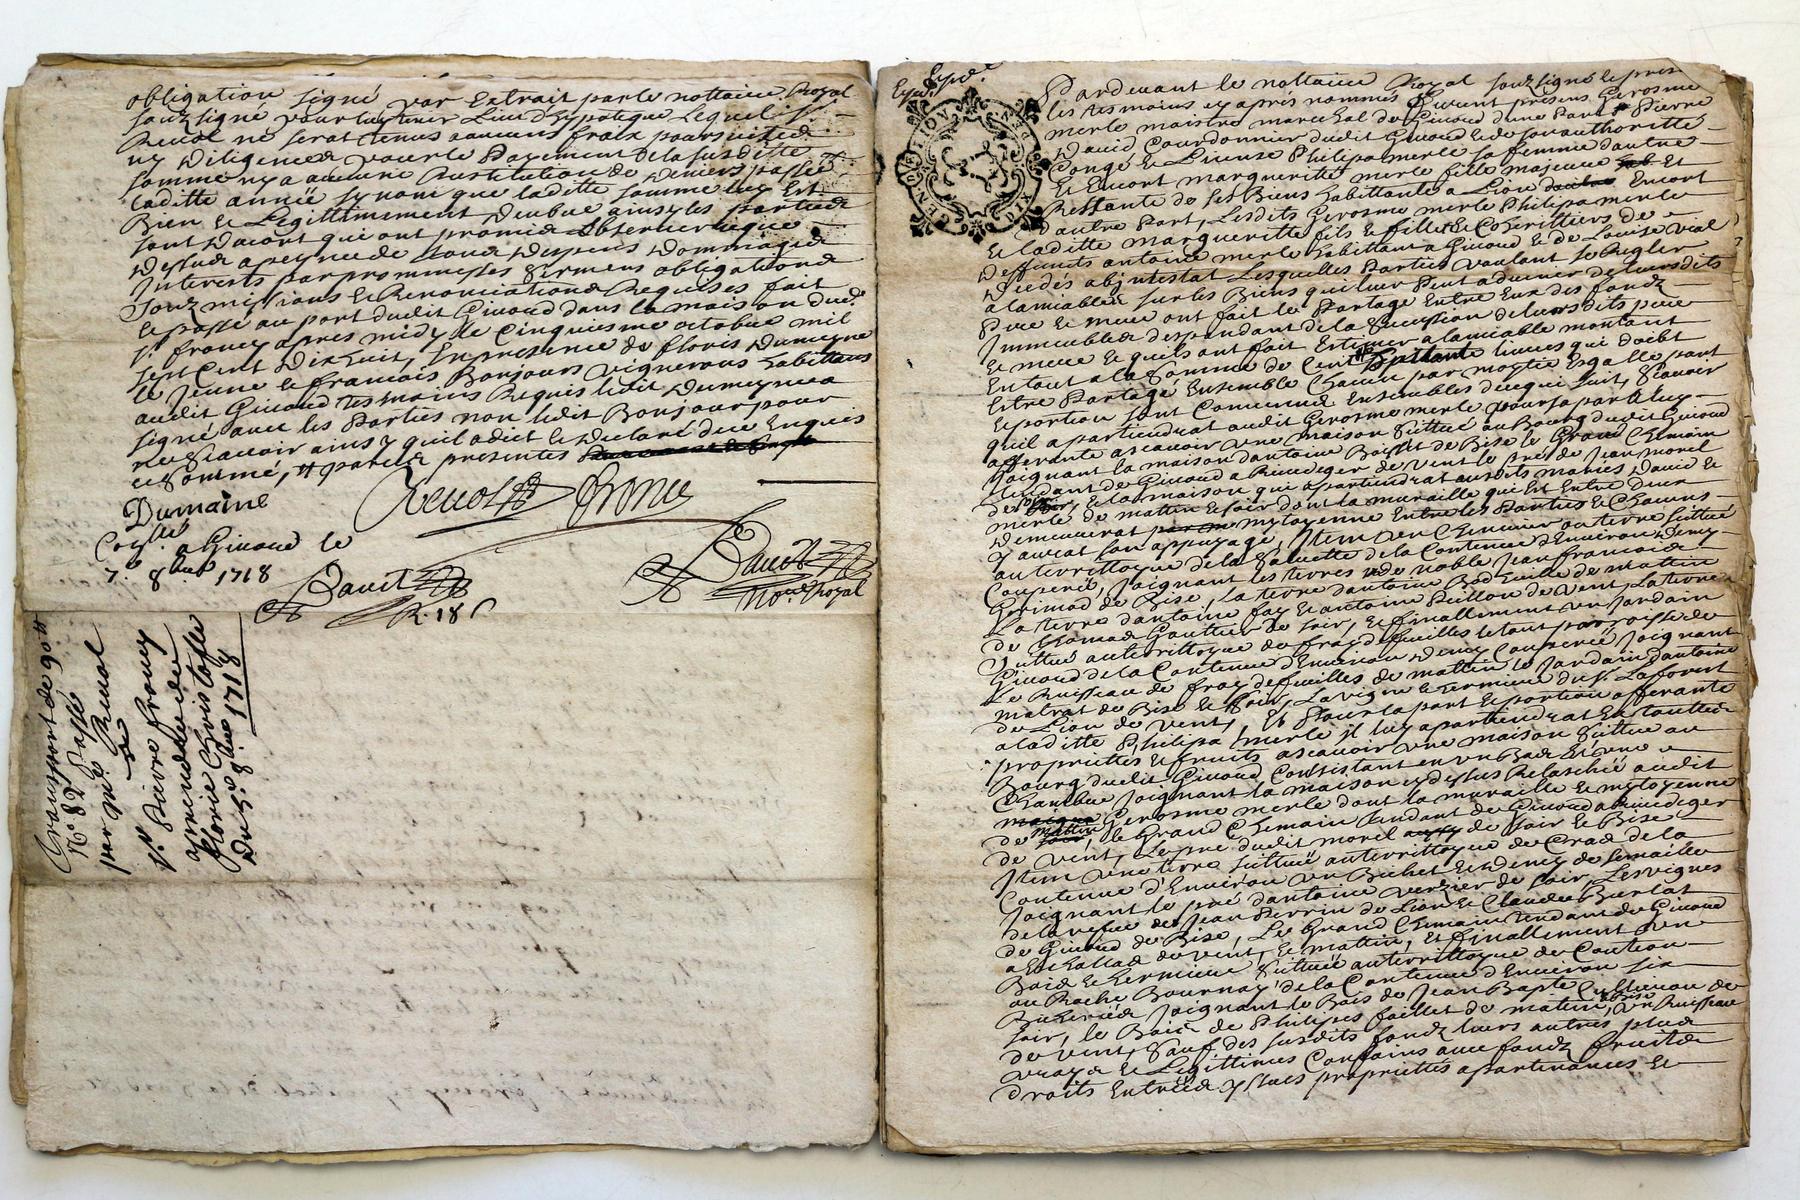 obligation signé par Extrait par le nottaire Royal
souz signé pour luy livrer Lieu d'ypoteque Lequel sr.
Renol ne serat tenus aucuns fraix poursuittes
ny diligences pour le Payement de la susditte
somme ny a aucune Restitution de deniers passée
laditte année sy non que laditte somme luy Est
Bien et Legittimement deubue ainsy les parties
sont d'acort qui ont promis observer ce que
dessus a peyne de tous despens dommages
Interests par prommesses sermens obligations
souz missions et Renonciations Requises fait
et passé au port dudit Givord dans la maison dud.
sr. froncy apres midy le Cinquiesme octobre mil
sept Cent dix huit, En presence de floris dumeyne
le Jeune et francois Bonjours vignerons habittans
audit Givord tesmoins Requis ledit dumeynes
signé avec les Parties non ledit Bonjour pour
ne sçavoir ainsy quil a dict et declaré de ce Enquis
et sommé, par les presentes
Dumaine Renol fronci
a Givord le
7e. 8bre 1718
Bauet Bauet
R. 18 s nore. Royal
Transport de 90 tt
No 82 Passé
par mre. Renol
a
sr. Pierre froncy
apprendre de
florie Christofle
du 5e. 8bre 1718
GENERALITE DE LION
Expé.e
Pardevant le nottaire Royal souz signé et presen
les tesmoins cy aprés nommés furent présens Gerosme
merle maistre marechal de Givord d'une Part, Pierre
David Courdonnier dudit Givord et de son authoritté
Congé et Licence Philipa merle sa femme d'autre
Et Encort marguerite merle fille majeure Et
Ressante de ses Biens habittante a Lion Encort
d'autre Part, Lesdits Gerosme merle Philipa merle
Et laditte marguerite fils et filles et Coherittiers de
deffunts antoine merle habittant a Givord et de Louise vial
decedés abjntestat Lesquelles Parties voulant se Regler
a lamiable sur les Biens qui leur Peut advenir de leursdits
Pere et mere ont fait le Partage Entre Eux des fondz
Immeubles dependant de la succession de leursdits pere
et mere Et quils ont fait Estimer a lamiable montant
En tout a la somme de Cent livres qui doibt
Estre Partagé Ensemble Chacun par moytié Esgalle part
Et portion sont Convenus Ensembles de ce qui suit, sçavoir
quil apartiendrat audit Gerosme merle pour sa part luy
afferante ascavoir une maison sittué au Bourg dudit Givord
Joignant la maison dantoine de Bise le Grand Chemain
tendant de Givord a Rivedeger de vent le pré de Jean morel
de soir, Et la maison qui apartiendrat ausdits mariés david et
merle de mattin et soir dont la muraille qui Est Entre deux
demeurerat mytoyenne Entre les Parties et Chacuns
y aurat son appuyage, Item un Chenevier ou terre sittué
au territtoyre de la de la Contenue d'Environ demy
Couperée, Joignant les terres de noble Jean francois
Grimod de Bise, la terre dantoine de mattin
La terre dantoine fay et antoine Peillon de vent, La terre
de thomas Gaultier de soir, Et finallement un Jardain
sittué au territtoyre de fray defeuilles le tout parroisse de
Givord de la Contenue d'Environ demy Couperée Joignant
Le Ruisseau de fray defeuilles de mattin le Jardain dantoine
matrat de Bise et soir, La vigne et vermieu du sr. Laforest
de Lion de vent, Et Pour la part et portion afferante
a laditte Philipa merle il luy apartiendrat En touttes
proprietés et fruits ascavoir une maison sittue au
Bourg dudit Givord Consistant en un Bas Et une
Chambre Joignant la maison cy dessus Relaschée audit
Gerosme merle dont la muraille Est mytoyenne
de mattin, le Grand Chemain tendant de Givord a Rivedeger
de vent, Le pré dudit morel de soir et Bise
Item une terre sittué au territtoyre de Crad de la
Contenue d'Environ un Bichet Et demy de semaille
Joignant le pré dantoine verzier de soir, Les vignes
de la vefve de Jean Perrin de Lion et Claude Burlat
de Givord de Bise, Le Grand Chemain tendant de Givord
a Eschallas de vent, et mattin, Et finallement un
Bois et hermieu sittué au territtoyre de Couteau
ou Roche Bournay de la Contenue d'Environ six
Bicherées Joignant le Bois de Jean Bapte de
soir, le Bois de Philipes faillet de mattin, un Ruisseau
de vent, sauf des susdits fondz leurs autres plus
vrays et Legittimes Confains avec fondz fruits
droits Entrées yssues proprietés apartenances Et